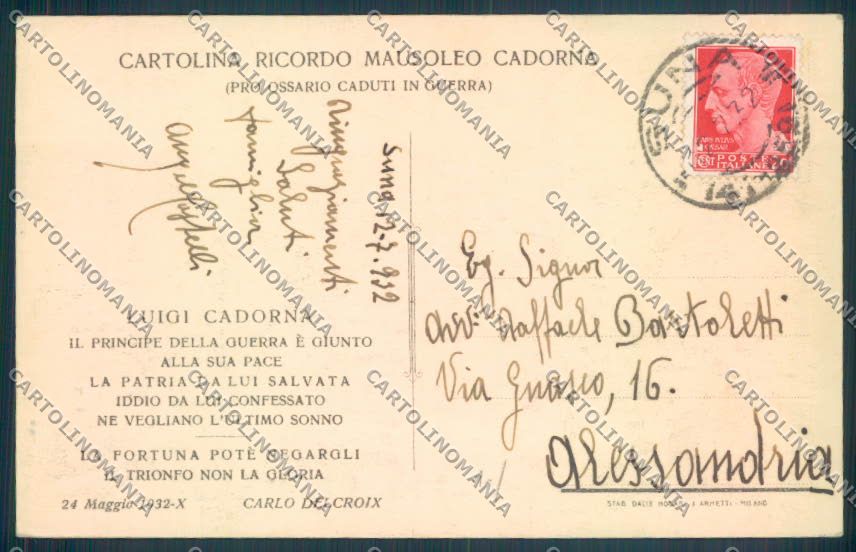 CARTOLINA RICORDO MAUSOLEO CADORNA
(PRO OSSARIO CADUTI IN GUERRA)
Suna 12-7-932
Ringraziamenti
Saluti
famiglia
LUIGI CADORNA
IL PRINCIPE DELLA GUERRA È GIUNTO
ALLA SUA PACE
LA PATRIA DA LUI SALVATA
IDDIO DA LUI CONFESSATO
NE VEGLIANO L'ULTIMO SONNO
LA FORTUNA POTÈ NEGARGLI
IL TRIONFO NON LA GLORIA
24 Maggio 1932-X CARLO DELCROIX
SUNA
POSTE
ITALIANE
Eg. Signor
Avv. Raffaele Bartoletti
Via Guasco, 16.
Alessandria
MILANO
CARTOLINOMANIA